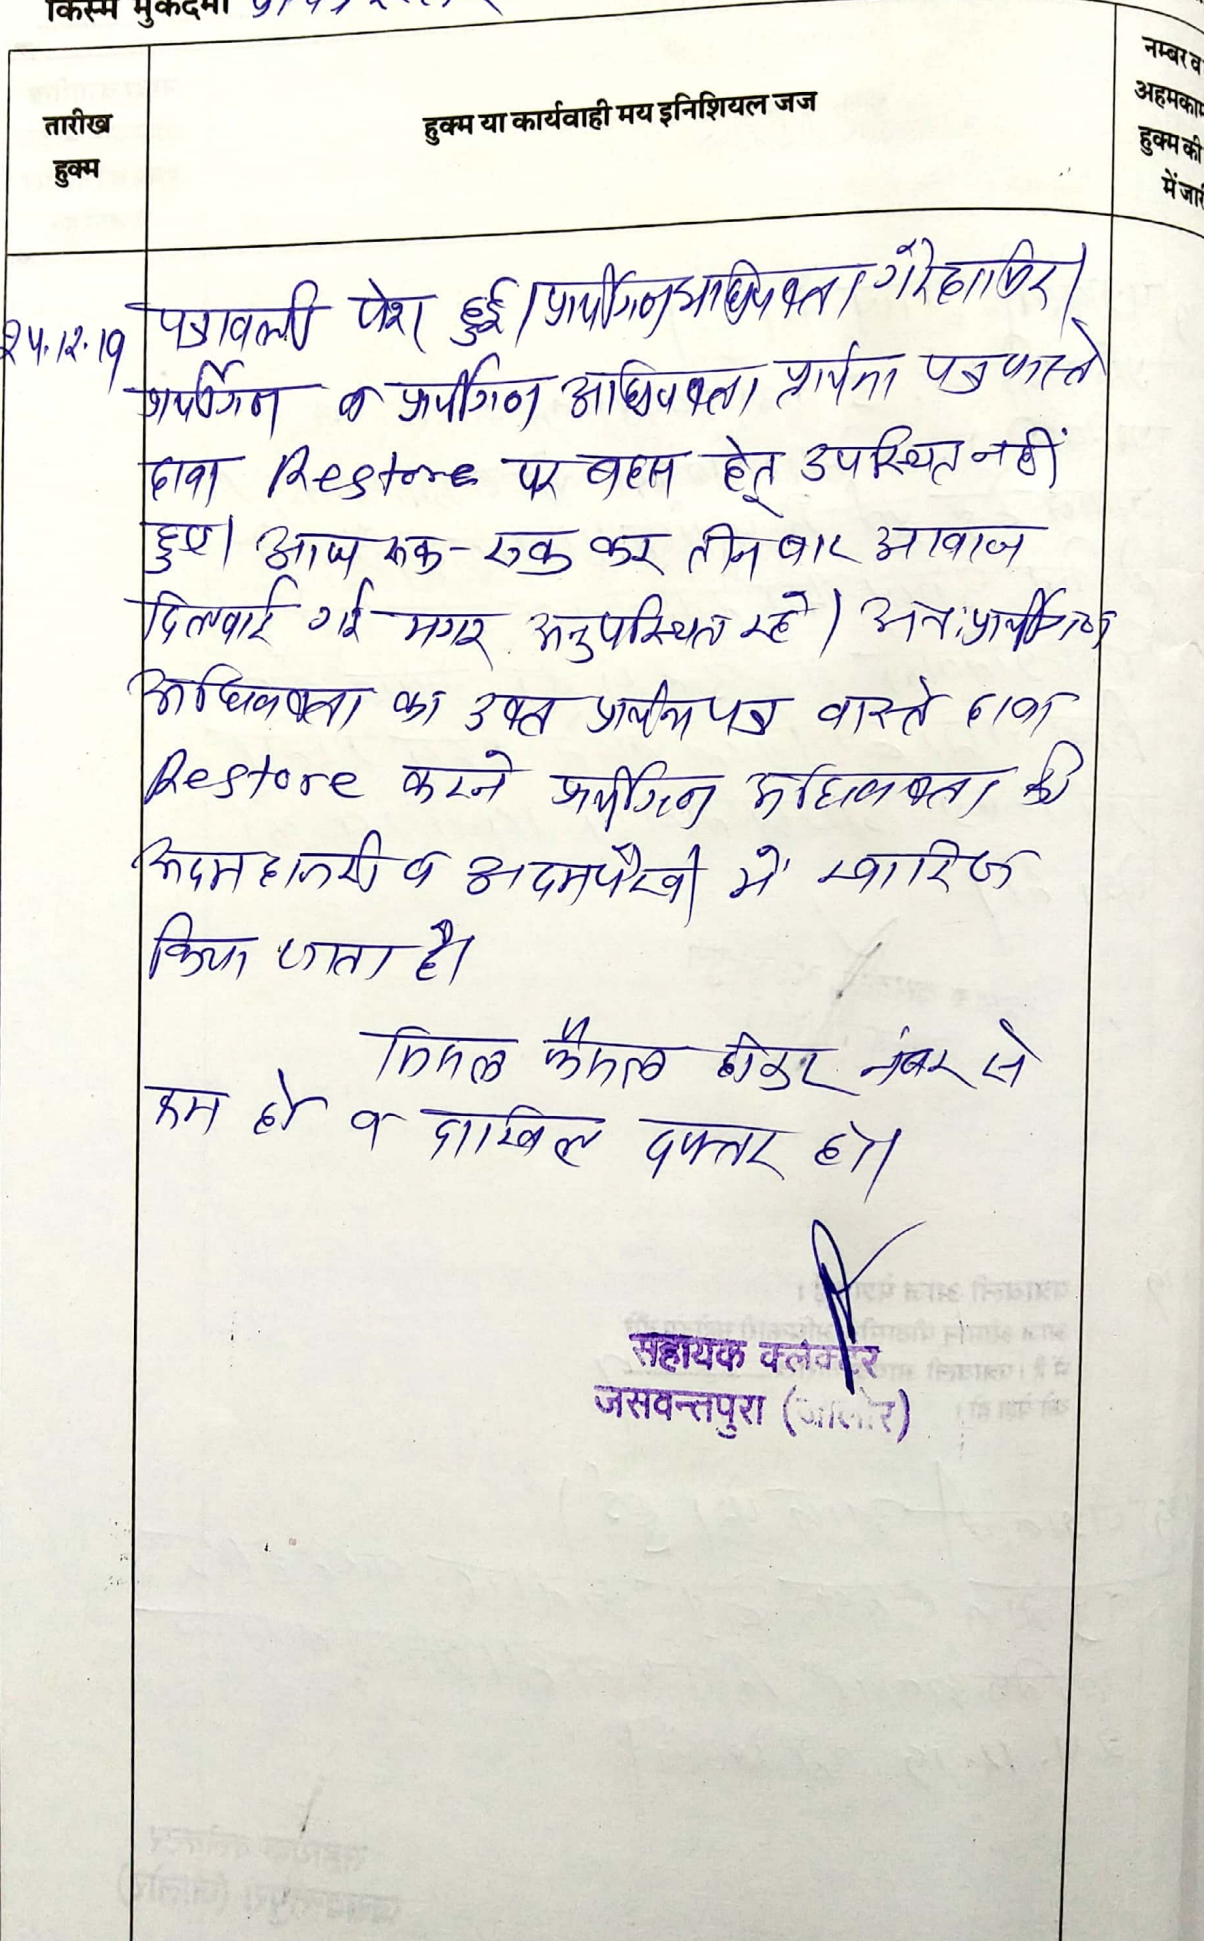 किस्म मुकदमा
तारीख
हुक्म
हुक्म या कार्यवाही मय इनिशियल जज
नम्बर व
अहमकाम
हुक्म की
में जारी
24.12.19
पत्रावली पेश हुई। प्रार्थीगण अधिवक्ता गैरहाजिर।
प्रार्थीगण व प्रार्थीगण अधिवक्ता प्रार्थना पत्र वास्ते
दावा Restore पर बहस हेतू उपस्थित नहीं
हुए। आज रूक-रूक कर तीन बार आवाज
दिलवाई गई मगर अनुपस्थित रहे। अतः प्रार्थीगण
अधिवक्ता का उक्त प्रार्थना पत्र वास्ते दावा
Restore करने प्रार्थीगण अधिवक्ता की
अदम हाजरी व अदमपैरवी में खारिज
किया जाता है।
मिसल फैसल होकर नंबर से
कम हो व दाखिल दफ्तर हो।
सहायक क्लेक्टर
जसवन्तपुरा (जालोर)